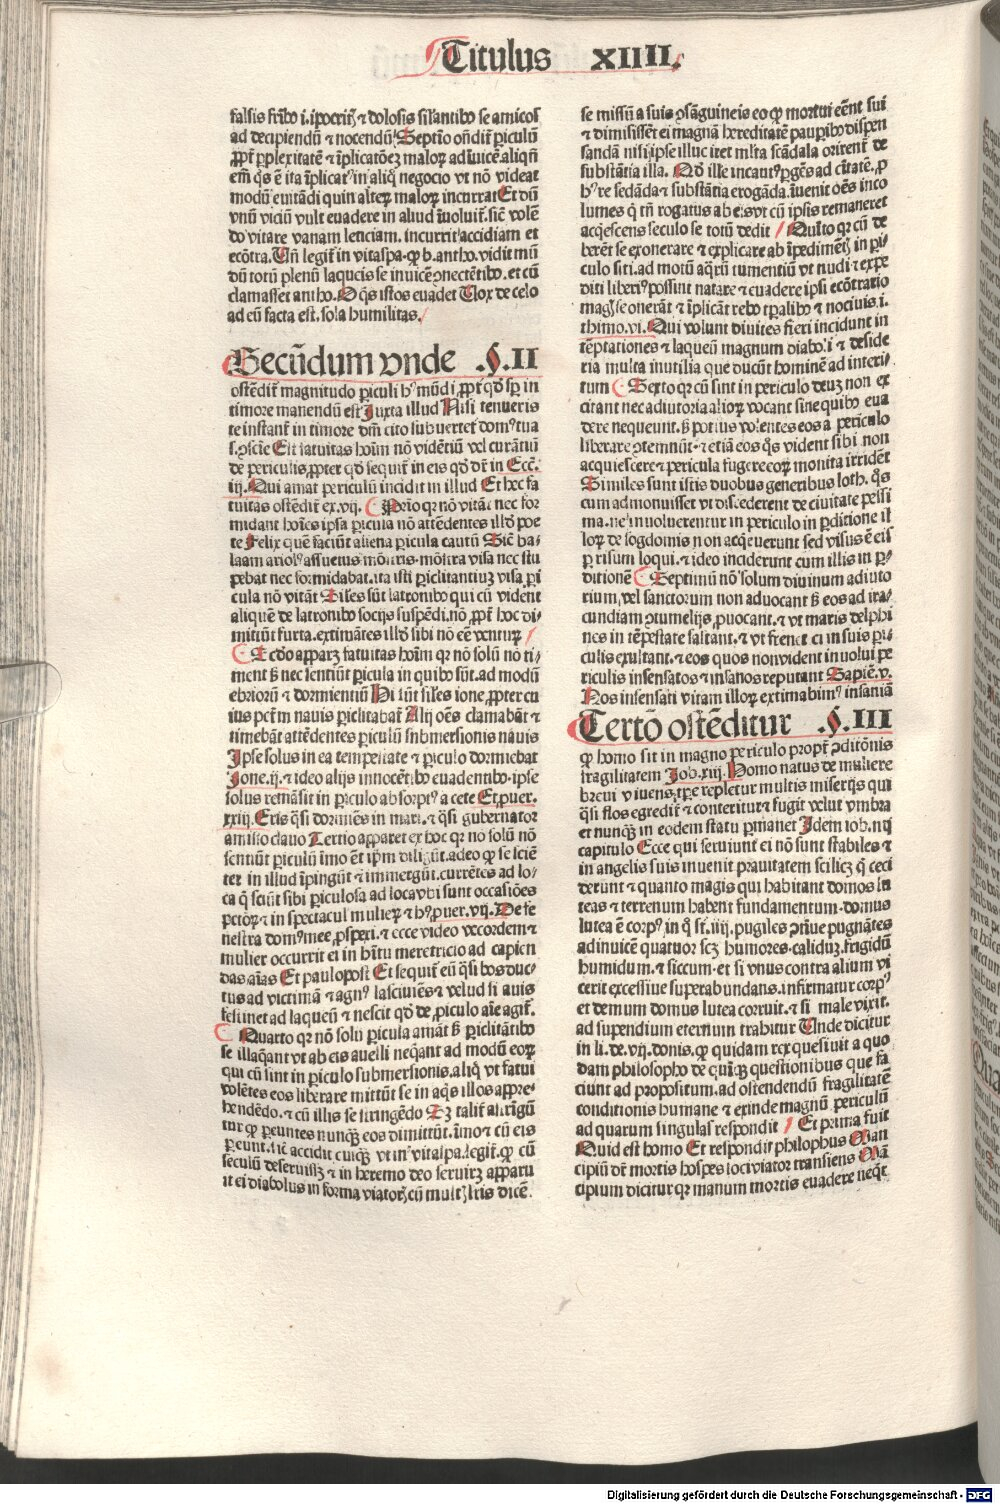 Titulus XIIII.
falsis fr̄ibꝰ i. ipocritꝭ ⁊ dolosis siĺantibꝰ se amicos
ad decipiendū ⁊ nocendū Septīo on̄dit᷑ ꝑiculū
ꝓpt᷑ ꝑplexitatē ⁊ īplicatōeꝫ maloꝝ adīuicē aliqn̄
em̄ qͥs ē ita īplicatꝰ in aliqͦ negocio vt nō videat
modū euitādi quin alteꝝ maloꝝ incurrat Et dū
vnū viciū vult euadere in aliud īuoluit᷑. sic̄ volē
do vitare vanam leticiam. incurrit accidiam et
ecōtra. Vn̄ legit᷑ in vitaspa. ꝙ b. antho. vidit mū
dū totū plenū laqueis se inuicē ꝯnectētibꝰ. et cū
clamasset antho. O qͥs istos euadet Vox de celo
ad eū facta est. sola humilitas.
Secūdum vnde .§. II
ostēdit᷑ magnitudo ꝑiculi hꝰ mūdi ꝓpt᷑ qd̓ sꝑ in
timore manendū est Juxta illud Nisi tenueris
te instant᷑ in timore dn̄i cito subuertet᷑ domꝰ tua
s. ꝯscīe Est fatuitas hoīm nō vidētiū vel curātiū
de periculis, ꝓpter qd̓ sequunt᷑ in eis qd̓ dr̄ in Ecc̄.
iij. Qui amat periculū incidit in illud Et hec fa
tuitas ostēdit᷑ ex. vij. Prīo qꝛ nō vitāt nec for
midant hoīes ipsa ꝑicula nō attēdentes illd̓ poe
te Felix quē faciūt aliena ꝑicula cautū Sic̄ ba⸗
laam ariolꝰ assuetus mōstris. mōstra visa nec stu
pebat nec formidabat. ita isti ꝑiclitantiuꝫ visa ꝑi
cula nō vitāt Siĺes sūt latronibꝰ qui cū vident
aliquē de latronibꝰ socijs suspēdi. nō ꝓpt᷑ hoc di⸗
mittūt furta. extimātes illd̓ sibi nō eē venturꝝ
Scd̓o apparꝫ fatuitas hoīm qꝛ nō solū nō ti⸗
ment ſꝫ nec sentiūt ꝑicula in quibꝰ sūt. ad modū
ebrioruꝫ ⁊ dormientiū Hi sunt siĺes ione, ꝓpter cu
ius pct̄m nauis ꝑiclitabat᷑ Alij oēs clamabāt ⁊
timebāt attēdentes ꝑiculū submersionis nauis
Ipse solus in ea tempestate ⁊ ꝑiculo dormiebat
Jone. ij. ⁊ ideo alijs innocētibꝰ euadentibꝰ. ipse
solus remāsit in ꝑiculo absorptꝰ a cete Et, ꝓuer.
xxiij. Eris qͣsi dormiēs in mari. ⁊ qͣsi gubernator
amisso clauo Tertio apparet ex hoc qꝛ nō solū nō
sentiūt ꝑiculū īmo ēt ip̄m diligūt. adeo ꝙ se sciē
ter in illud īpingūt ⁊ immergūt. currētes ad lo⸗
ca qͣ sciūt sibi ꝑiculosa ad loca vbi sunt occasiōes
pct̄oꝝ ⁊ in spectacul mulieꝝ ⁊ hꝰ ꝓuer. vij. De fe
nestra domꝰ mee ꝓspexi. ⁊ ecce video vecordem ⁊
mulier occurrit ei in hītu meretricio ad capien
das aīas Et paulopost Et sequit᷑ eū qͣsi bos duc⸗
tus ad victimā ⁊ agnꝰ lasciuiēs ⁊ velud si auis
festinet ad laqueū ⁊ nescit qd̓ de ꝑiculo aīe agit᷑.
Quarto qꝛ nō solū ꝑicula amāt ſꝫ ꝑiclitātibꝰ
se illaqͣant vt ab eis auelli neqͣant ad modū eoꝝ
qui cū sint in ꝑiculo submersionis. aliqͥ vt fatui
volētes eos liberare mittūt se in aqͣs illos appre⸗
hendēdo. ⁊ cū illis se stringēdo Sꝫ talit᷑ astrīgū
tur ꝙ ꝑeuntes nunqͣꝫ eos dimittūt. īmo ⁊ cū eis
ꝑeunt. sic̄ accidit cuiqͣꝫ vt inͥ vitaspa. legit᷑. ꝙ cū
seculū deseruissꝫ ⁊ in heremo deo seruirꝫ apparu
it ei diabolus in forma viatorꝭ cū multꝭ lr̄is dicē.
se missū a suis ꝯsanguineis eo ꝙ mortui eēnt sui
⁊ dimisissēt ei magnā hereditatē pauꝑibꝰ dispen
sandā nisi ipse illuc iret ml̄ta scādala orirent᷑ de
substātia illa. Ad ille incautꝰ ꝑgēs ad ciuitatē, ꝓ
hꝰre sedādā ⁊ substātia erogāda. īuenit oēs inco
lumes qͥ tn̄ rogatus ab eis vt cū ipsis remaneret
acqͥescens seculo se totū dedit Quīto qꝛ cū de
berēt se exonerare ⁊ explicare ab īpedimētꝭ in ꝑi
culo siti. ad motū aqͣꝝ tumentiū vt nudi ⁊ expe
diti liberiꝰ possint natare ⁊ euadere ipsi ecōtrario
magꝭ se onerāt ⁊ īplicāt rebꝰ tꝑalibꝰ ⁊ nociuis. i.
thimo. vi. Qui volunt diuites fieri incidunt in
tēptationes ⁊ laqueū magnum diaboli ⁊ deside
ria multa inutilia que ducūt hominē ad interi⸗
tum Sexto qꝛ cū sint in periculo deuꝫ non ex
citant nec adiutoria alioꝝ vocant sine quibꝰ eua
dere nequeunt. ſꝫ potiꝰ volentes eos a periculo
liberare ꝯtemnūt. ⁊ etiā eos qͥs vident sibi non
acquiescere ⁊ pericula fugere eoꝝ monita irridēt
Similes sunt istis duobus generibus loth. qͥs
cum admonuisset vt discederent de ciuitate pessi
ma. ne inuoluerentur in periculo in ꝑditione il
loꝝ de sogdomis non acqͥeuerunt sed visus ē eis
ꝑ risum loqui. ⁊ ideo inciderunt cum illis in ꝑ⸗
ditionē Septimū nō solum diuinum adiuto
rium, vel sanctorum non aduocant ſꝫ eos ad ira⸗
cundiam ꝯtumelijs ꝓuocant. ⁊ vt maris delphi
nes in tēpestate saltant. ⁊ vt frenetici in suis ꝑi⸗
culis exultant. ⁊ eos quos non vident inuolui pe
riculis insensatos ⁊ insanos reputant Sapiē. v.
Nos insensati vitam illoꝝ extimabimꝰ insaniā
Tertō ostēditur .§. III
ꝙ homo sit in magno periculo propt᷑ ꝯditōnis
fragilitatem Job. xiij. Homo natus de muliere
breui viuens tp̄e repletur multis miserijs qui
qͣsi flos egredit᷑ ⁊ conteritur ⁊ fugit velut vmbra
et nunqͣꝫ in eodem statu ꝑmanet Idem iob. iiij
capitulo Ecce qui seruiunt ei nō sunt stabiles ⁊
in angelis suis inuenit prauitatem scilicꝫ qͥ ceci
derunt ⁊ quanto magis qui habitant domos lu
teas ⁊ terrenum habent fundamentum. domus
lutea ē corpꝰ, in qͦ st̄. iiij. pugiles ꝯtīue pugnātes
adinuicē quatuor scꝫ humores. caliduꝫ. frigidū
humidum. ⁊ siccum. et si vnus contra alium vi
cerit excessiue superabundans. infirmatur corpꝰ
et demum domus lutea corruit. ⁊ si male vixit.
ad supendium eternum trahitur Vnde dicitur
in li. de. vij. donis. ꝙ quidam rex quesiuit a quo
dam philosopho de quīqꝫ questionibus que fa
ciunt ad propositum. ad ostendendū fragilitatē
conditionis humane ⁊ exinde magnū periculū
ad quarum singulas respondit Et prima fuit
Quid est homo Et respondit philophus Man
cipiū dr̄ mortis hospes loci viator transiens Mā
cipium dicitur qꝛ manum mortis euadere neqͥt
Digitalisierung gefördert durch die Deutsche Forschungsgemeinschaft - DFG